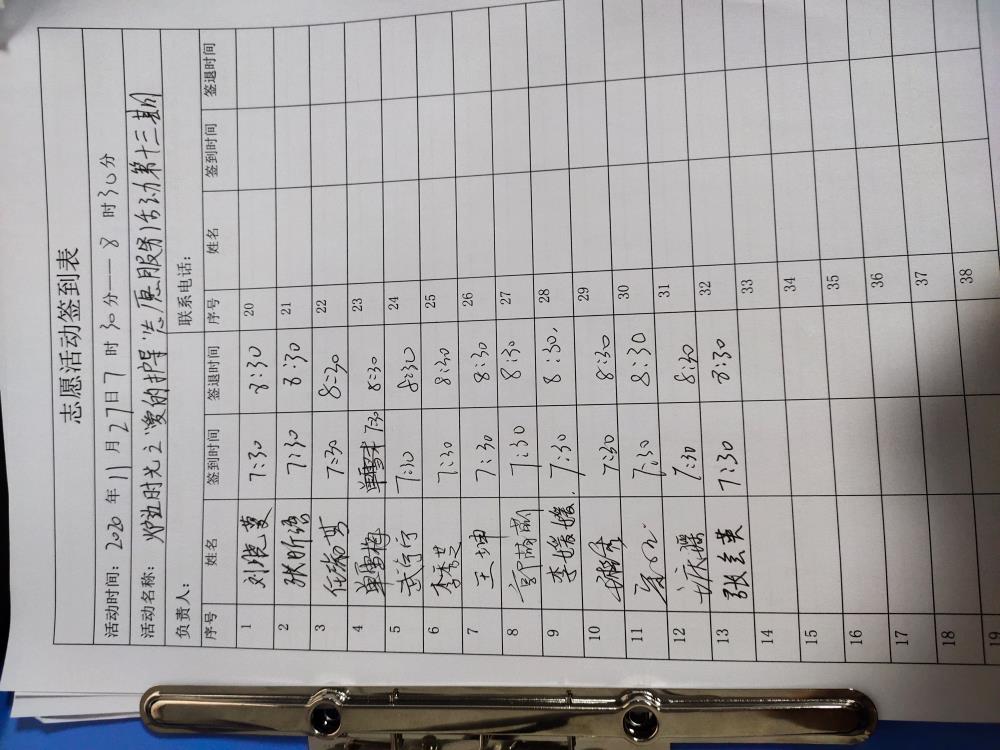 志愿活动签到表
活动时间：2020 年 11 月 27 日 7 时 30 分—— 8 时 30 分
活动名称： 炉边时光之"爱的护导"志愿服务活动第十三期
负责人： 联系电话：
序号 姓名 签到时间 签退时间 序号 姓名 签到时间 签退时间
1 刘晓蔓 7:30 8:30 20
2 张昕语 7:30 8:30 21
3 7:30 8:30 22
4 单雪梅 7:30 8:30 23
5 武宁宁 7:30 8:30 24
6 李秀芝 7:30 8:30 25
7 王坤 7:30 8:30 26
8 7:30 8:30 27
9 李媛媛. 7:30 8:30. 28
10 7:30 8:30 29
11 7:30 8:30 30
12 7:30 8:30 31
13 张兰英 7:30 8:30 32
14 33
15 34
16 35
17 36
18 37
19 38